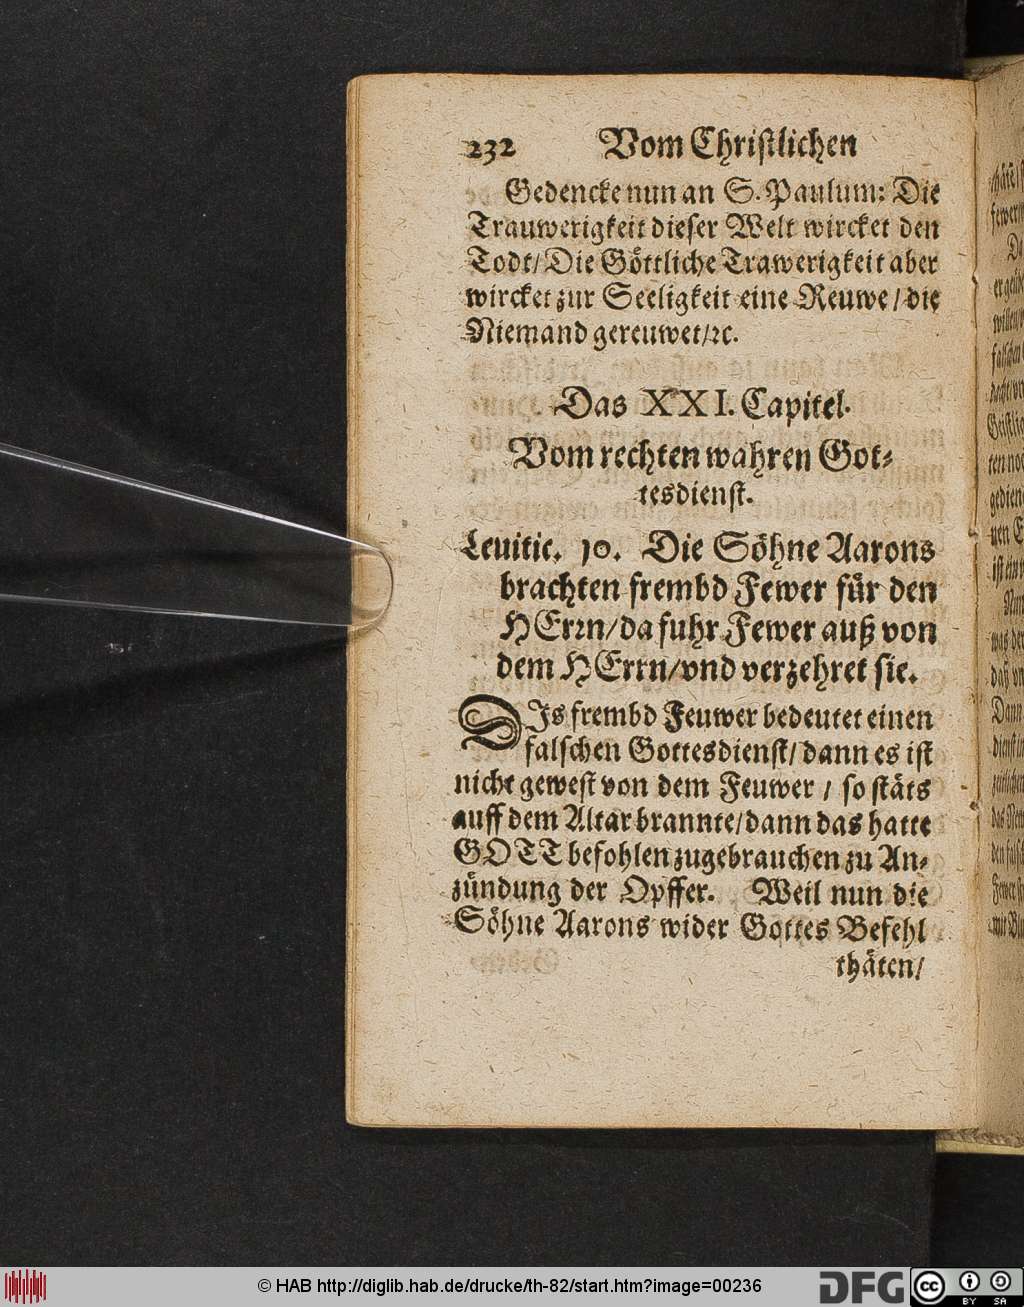 232 Vom Christlichen
Gedencke nun an S. Paulum: Die
Trauwerigkeit dieser Welt wircket den
Todt/ Die Göttliche Trawerigkeit aber
wircket zur Seeligkeit eine Reuwe / die
Niemand gereuwet/ ꝛc.
Das XXI. Capitel.
Vom rechten wahren Got-
tesdienst.
Leuitic. 10. Die Söhne Aarons
brachten frembd Fewer für den
HErrn/ da fuhr Fewer auß von
dem HErrn/ vnd verzehret sie.
DIs frembd Feuwer bedeutet einen
falschen Gottesdienst/ dann es ist
nicht gewest von dem Feuwer / so stäts
auff dem Altar brannte/ dann das hatte
GOTT befohlen zugebrauchen zu An-
zündung der Opffer. Weil nun die
Söhne Aarons wider Gottes Befehl
thäten/
© HAB http://diglib.hab.de/drucke/th-82/start.htm?image=00236
DFG
cc
BY SA